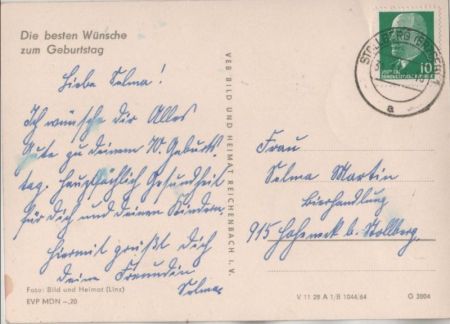 Die besten Wünsche
zum Geburtstag
Liebe Selma!
Ich wünsche dir Alles
Gute zu deinem 70. Geburts-
tag. Hauptsächlich Gesundheit
für dich und deinen Kindern.
Hiermit grüßt dich
deine Freundin
Selma
Foto: Bild und Heimat (Linz)
EVP MDN -.20
VEB BILD UND HEIMAT REICHENBACH I. V.
10
STOLLBERG (ERZGEB) 1
a
Frau
Selma Martin
Bierhandlung
915 Hoheneck b. Stollberg
V 11 28 A 1/B 1044/64
G 3804